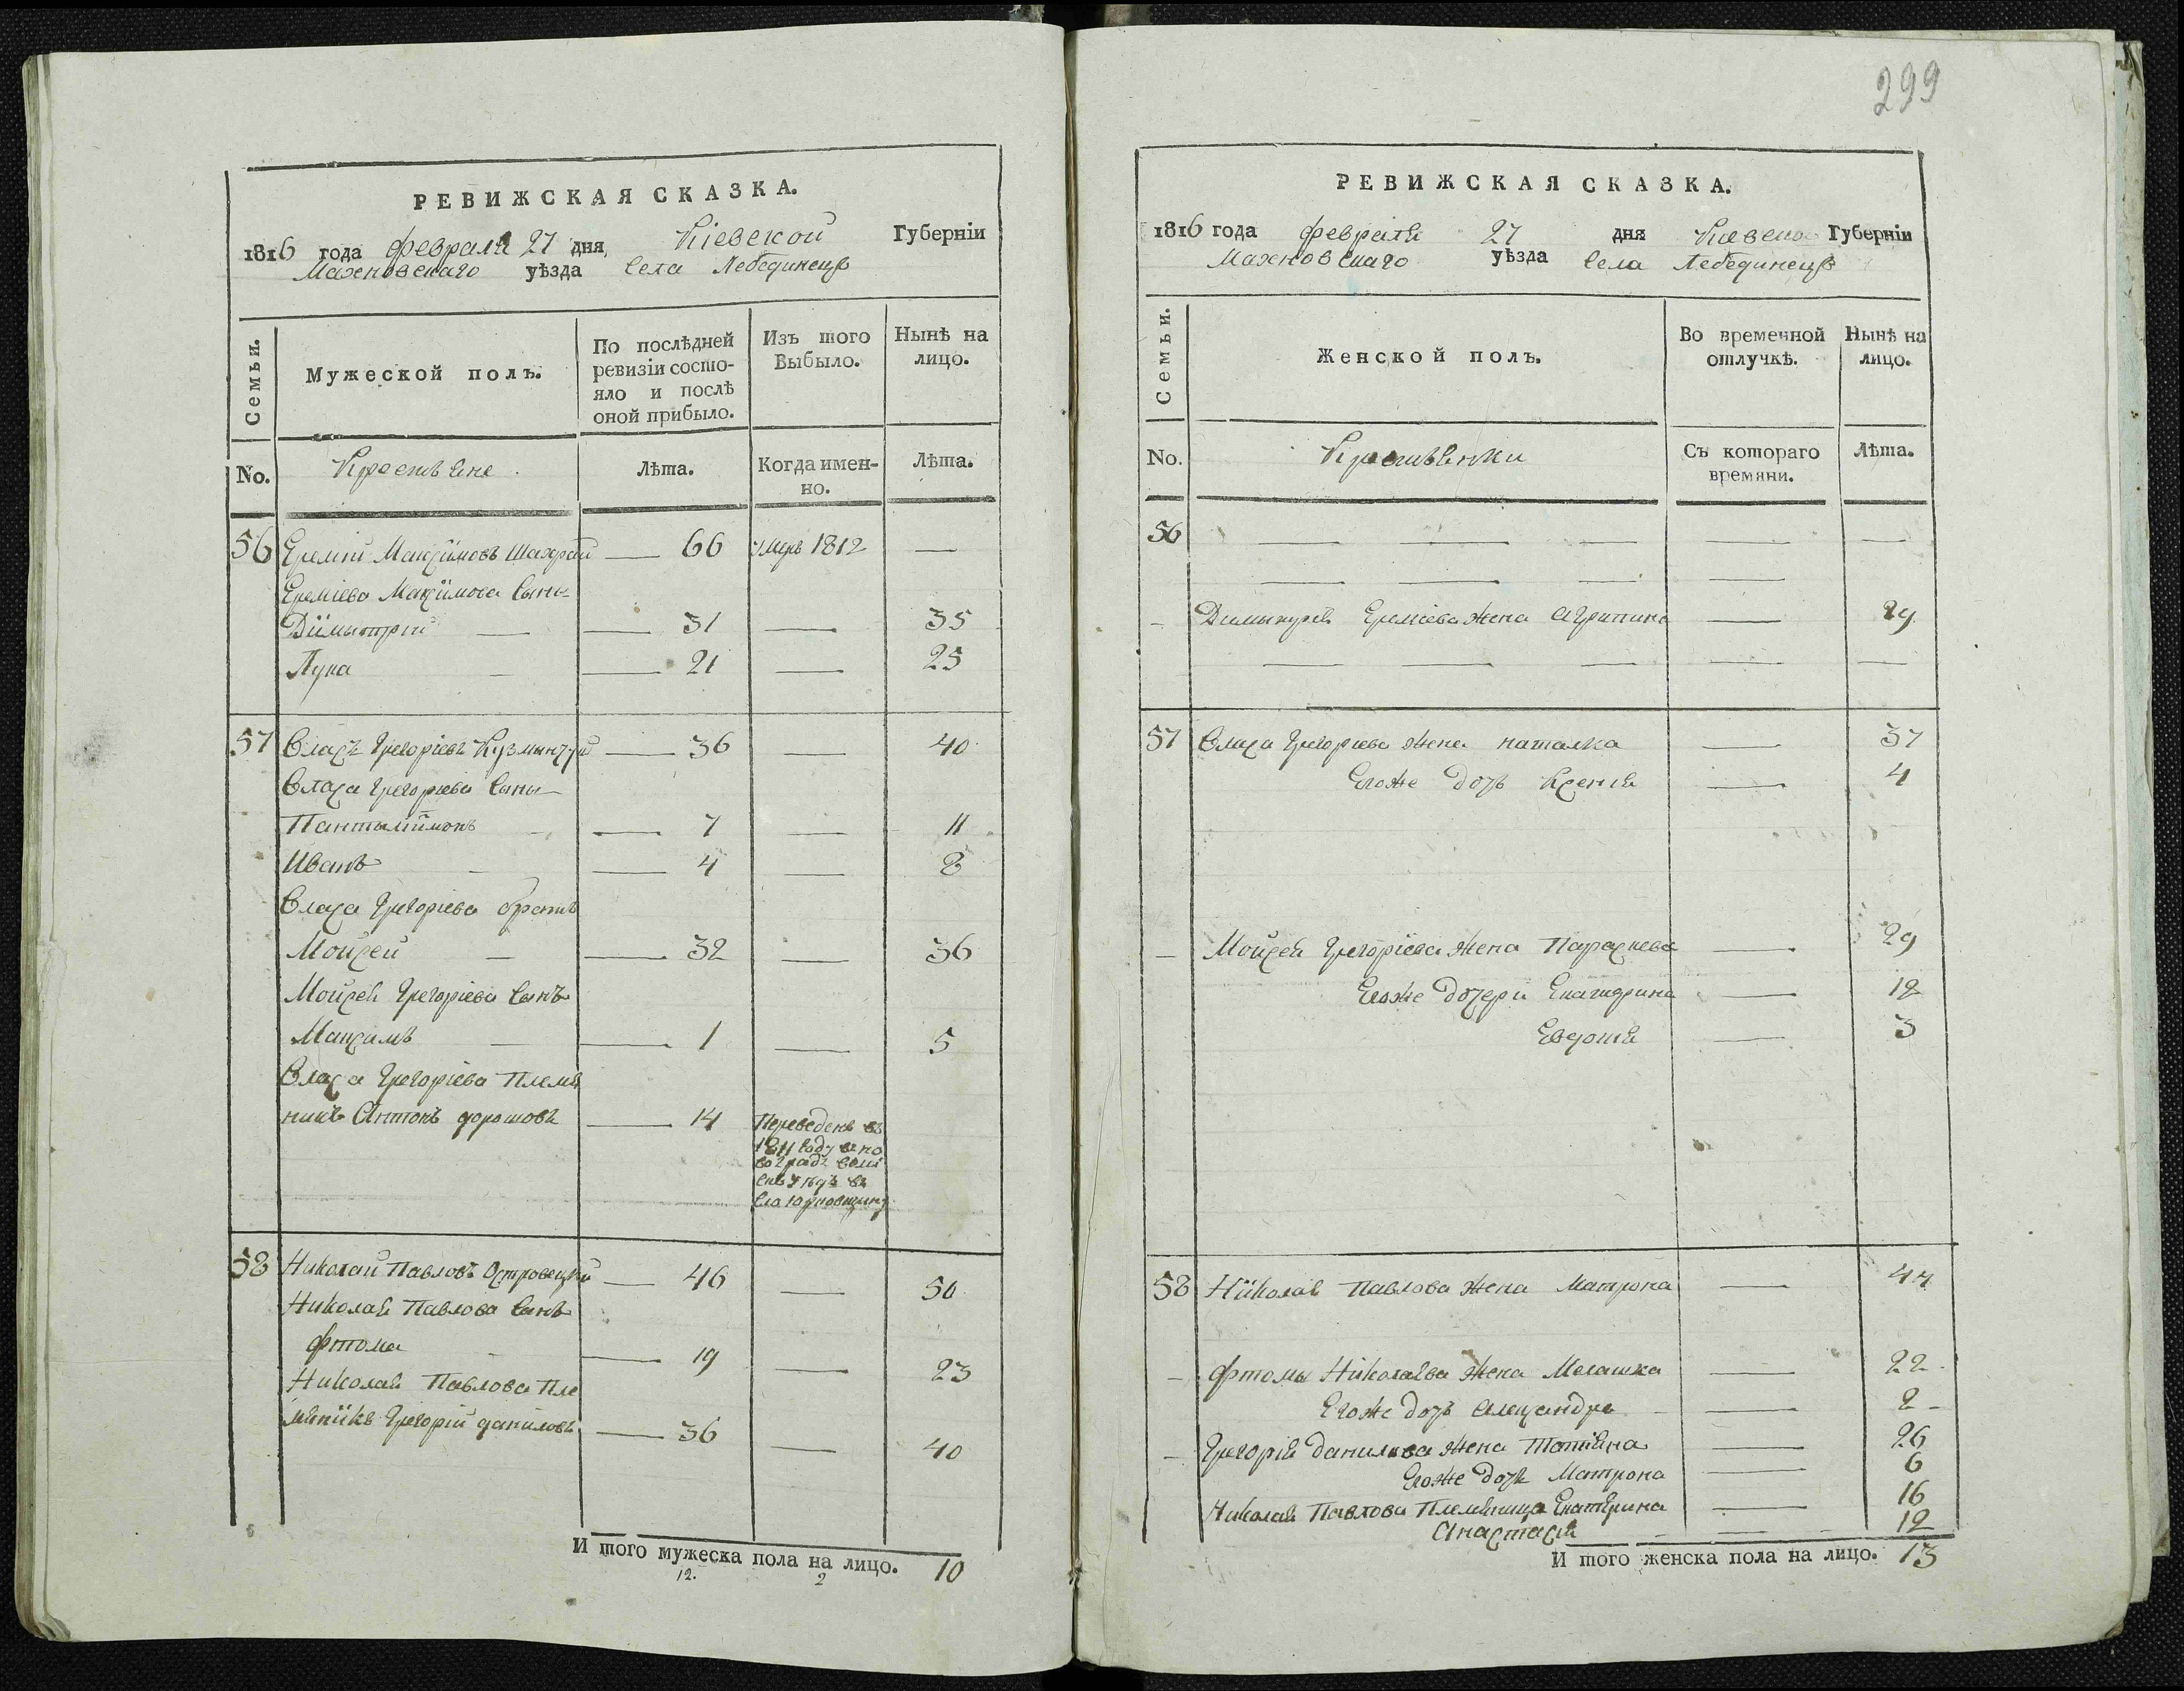 299
РЕВИЖСКАЯ СКАЗКА.
1816 года февраля 27 дня, Кіевской Губерніи
Махновскаго уѣзда Села Лебединецъ
Семьи.
Мужеской полъ.
По послѣдней ревизіи состояло и послѣ оной прибыло.
Изъ того Выбыло.
Нынѣ на лицо.
No.
Крестьяне
Лѣта.
Когда именно.
Лѣта.
56 Еремій Максимовъ Шахрай — 66 умре 1812 —
Еремієва Максимова Сыны
Дїмытрій — — 31 — 35
Лука — — 21 — 25
57 Власъ Григоріевъ Кузминчук — 36 — 40
Власа Григоріева Сыны
Пантылїимонъ — — 7 — 11
Иванъ — — 4 — 8
Власа Григоріева братъ
Мойсей — — 32 — 36
Мойсея Григоріева Сынъ
Максимъ — — 1 — 5
Власа Григоріева Племя
никъ Антонъ дорошовъ — 14 Переведенъ въ
1811 году в но
во град волы
Села Юрковщину
58 Николай Павловъ Островецкий — 46 — 50
Николая Павлова Сынъ
Фтома — — 19 — 23
Николая Павлова Пле
мянїкъ Григорій даниловъ — 36 — 40
И того мужеска пола на лицо. 10
12. 2
РЕВИЖСКАЯ СКАЗКА.
1816 года февраля 27 дня Киевско Губерніи
Махновскаго уѣзда Села Лебединецъ
Семьи.
Женской полъ.
Во временной отлучкѣ.
Нынѣ на лицо.
No.
Крестьянки
Съ котораго времяни.
Лѣта.
56 — — — — —
— — — —
— Димытрія Еремієва жена Агрипина — 29
— — — — —
57 Власа Григориева жена наталка — 37
Егоже дочь Ксенія — 4
— Мойсея Григоріева жена Параскева — 29
Егоже дочери Екатерина — 12
Евдокія — 3
58 Нїколая Павлова жена Матрона — 44
— Фтомы Ніколаева жена Мелашка — 22
Егоже дочь Александра — — 2 —
— Григорія данилова жена Татіяна — 26
Егоже дочь Матрона — 6
Николая Павлова Племяница Екатерина — 16
Анастасія — — — 12
И того женска пола на лицо. 13